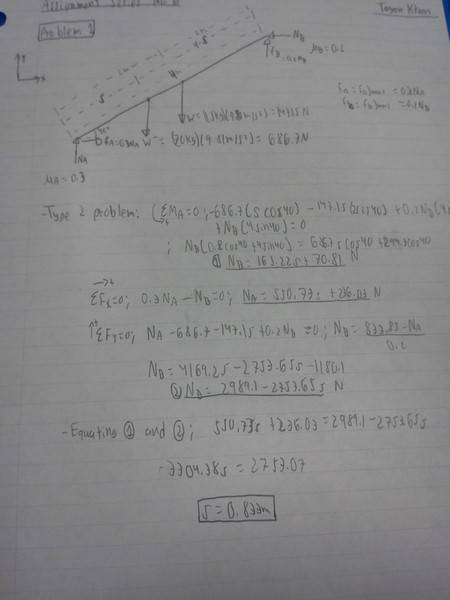 Assignment
Problem 1
Y
x
N_B
f_B = 0.2N_B
μ_B = 0.2
f_A = f_A max = 0.3N_A
f_B = f_B max = 0.2N_B
f_A = 0.3N_A
N_A
W = (15kg)(9.81m/s²) = 147.15N
W = (70kg)(9.81m/s²) = 686.7N
μ_A = 0.3
-Type 2 problem: ΣM_A=0; -686.7(s cos40) - 147.15(2cos40) + 0.2N_B(4
+N_B(4sin40)=0
; N_B(0.8cos40 + 4sin40) = 686.7s cos40 +
① N_B = 165.22s + 70.81 N
ΣF_x=0; 0.3N_A - N_B=0; N_A = 550.73s + 236.03 N
↑ΣF_y=0; N_A - 686.7 - 147.15 + 0.2N_B = 0; N_B = 833.85 - N_A
0.2
N_B = 4169.25 - 2753.65s - 1180.1
② N_B = 2989.1 - 2753.65s N
-Equating ① and ②; 550.73s + 236.03 = 2989.1 - 2753.65s
-3304.38s = 2753.07
s = 0.833m